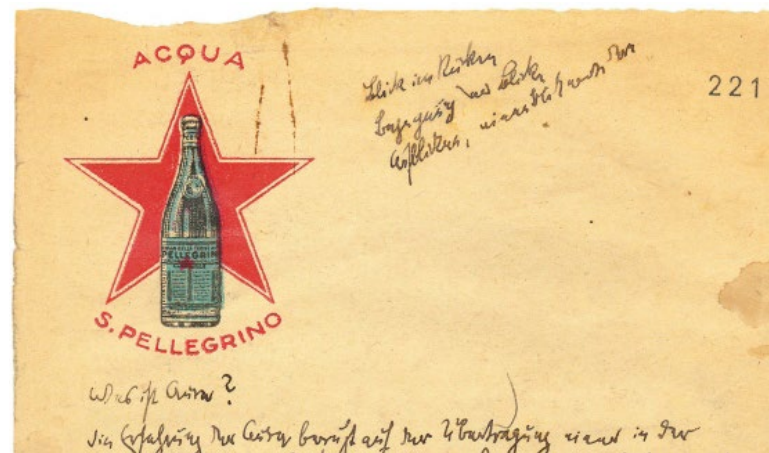 ACQUA
PELLEGRINO
S. PELLEGRINO
Blick im Rücken
Begegnung der Blicke
Aufblicken, einen Blick
221
Was ist Aura?
Die Erfahrung der Aura beruht auf der Übertragung einer in der